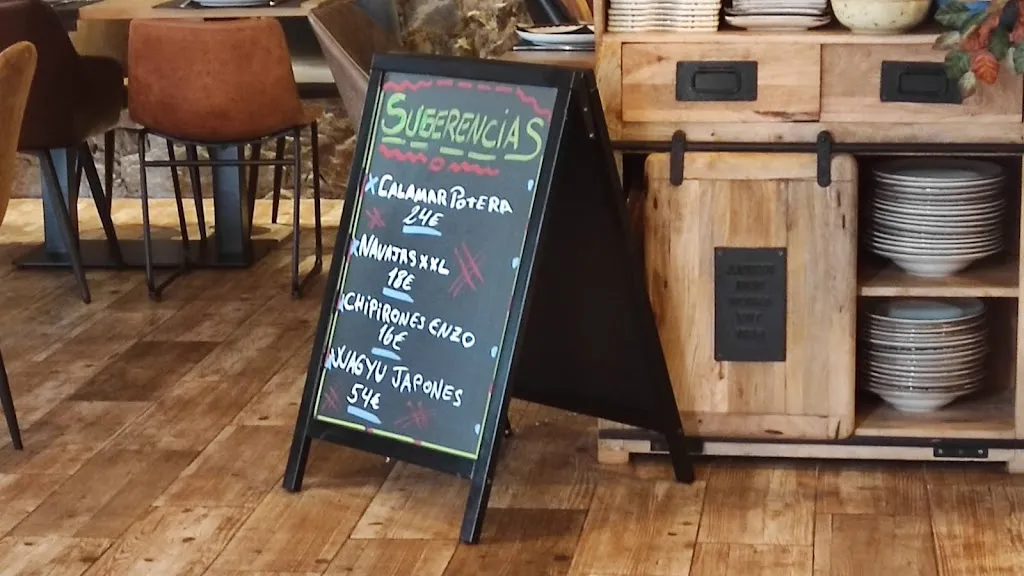 SUGERENCIAS
CALAMAR POTERA
24€
NAVAJAS XXL
18€
CHIPIRONES ENZO
16€
WAGYU JAPONES
54€